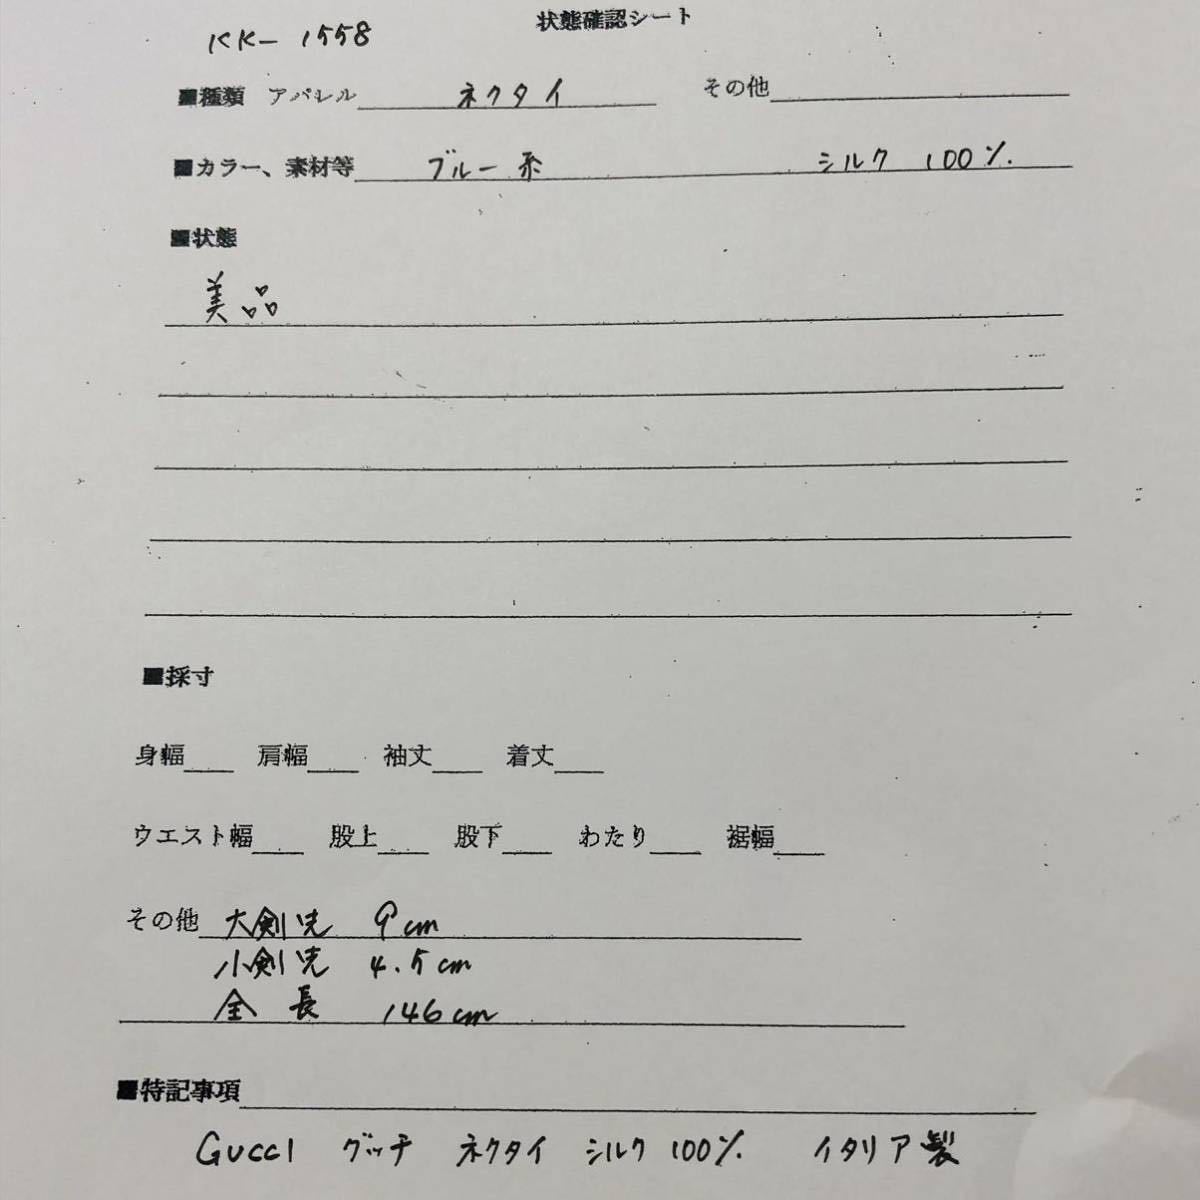 状態確認シート
KK- 1558
■種類 アパレル ネクタイ その他
■カラー、素材等 ブルー系 シルク 100%.
■状態
美品
■採寸
身幅 肩幅 袖丈 着丈
ウエスト幅 股上 股下 わたり 裾幅
その他 大剣先 9cm
小剣先 4.5cm
全長 146cm
■特記事項
GUCCI グッチ ネクタイ シルク100%. イタリア製